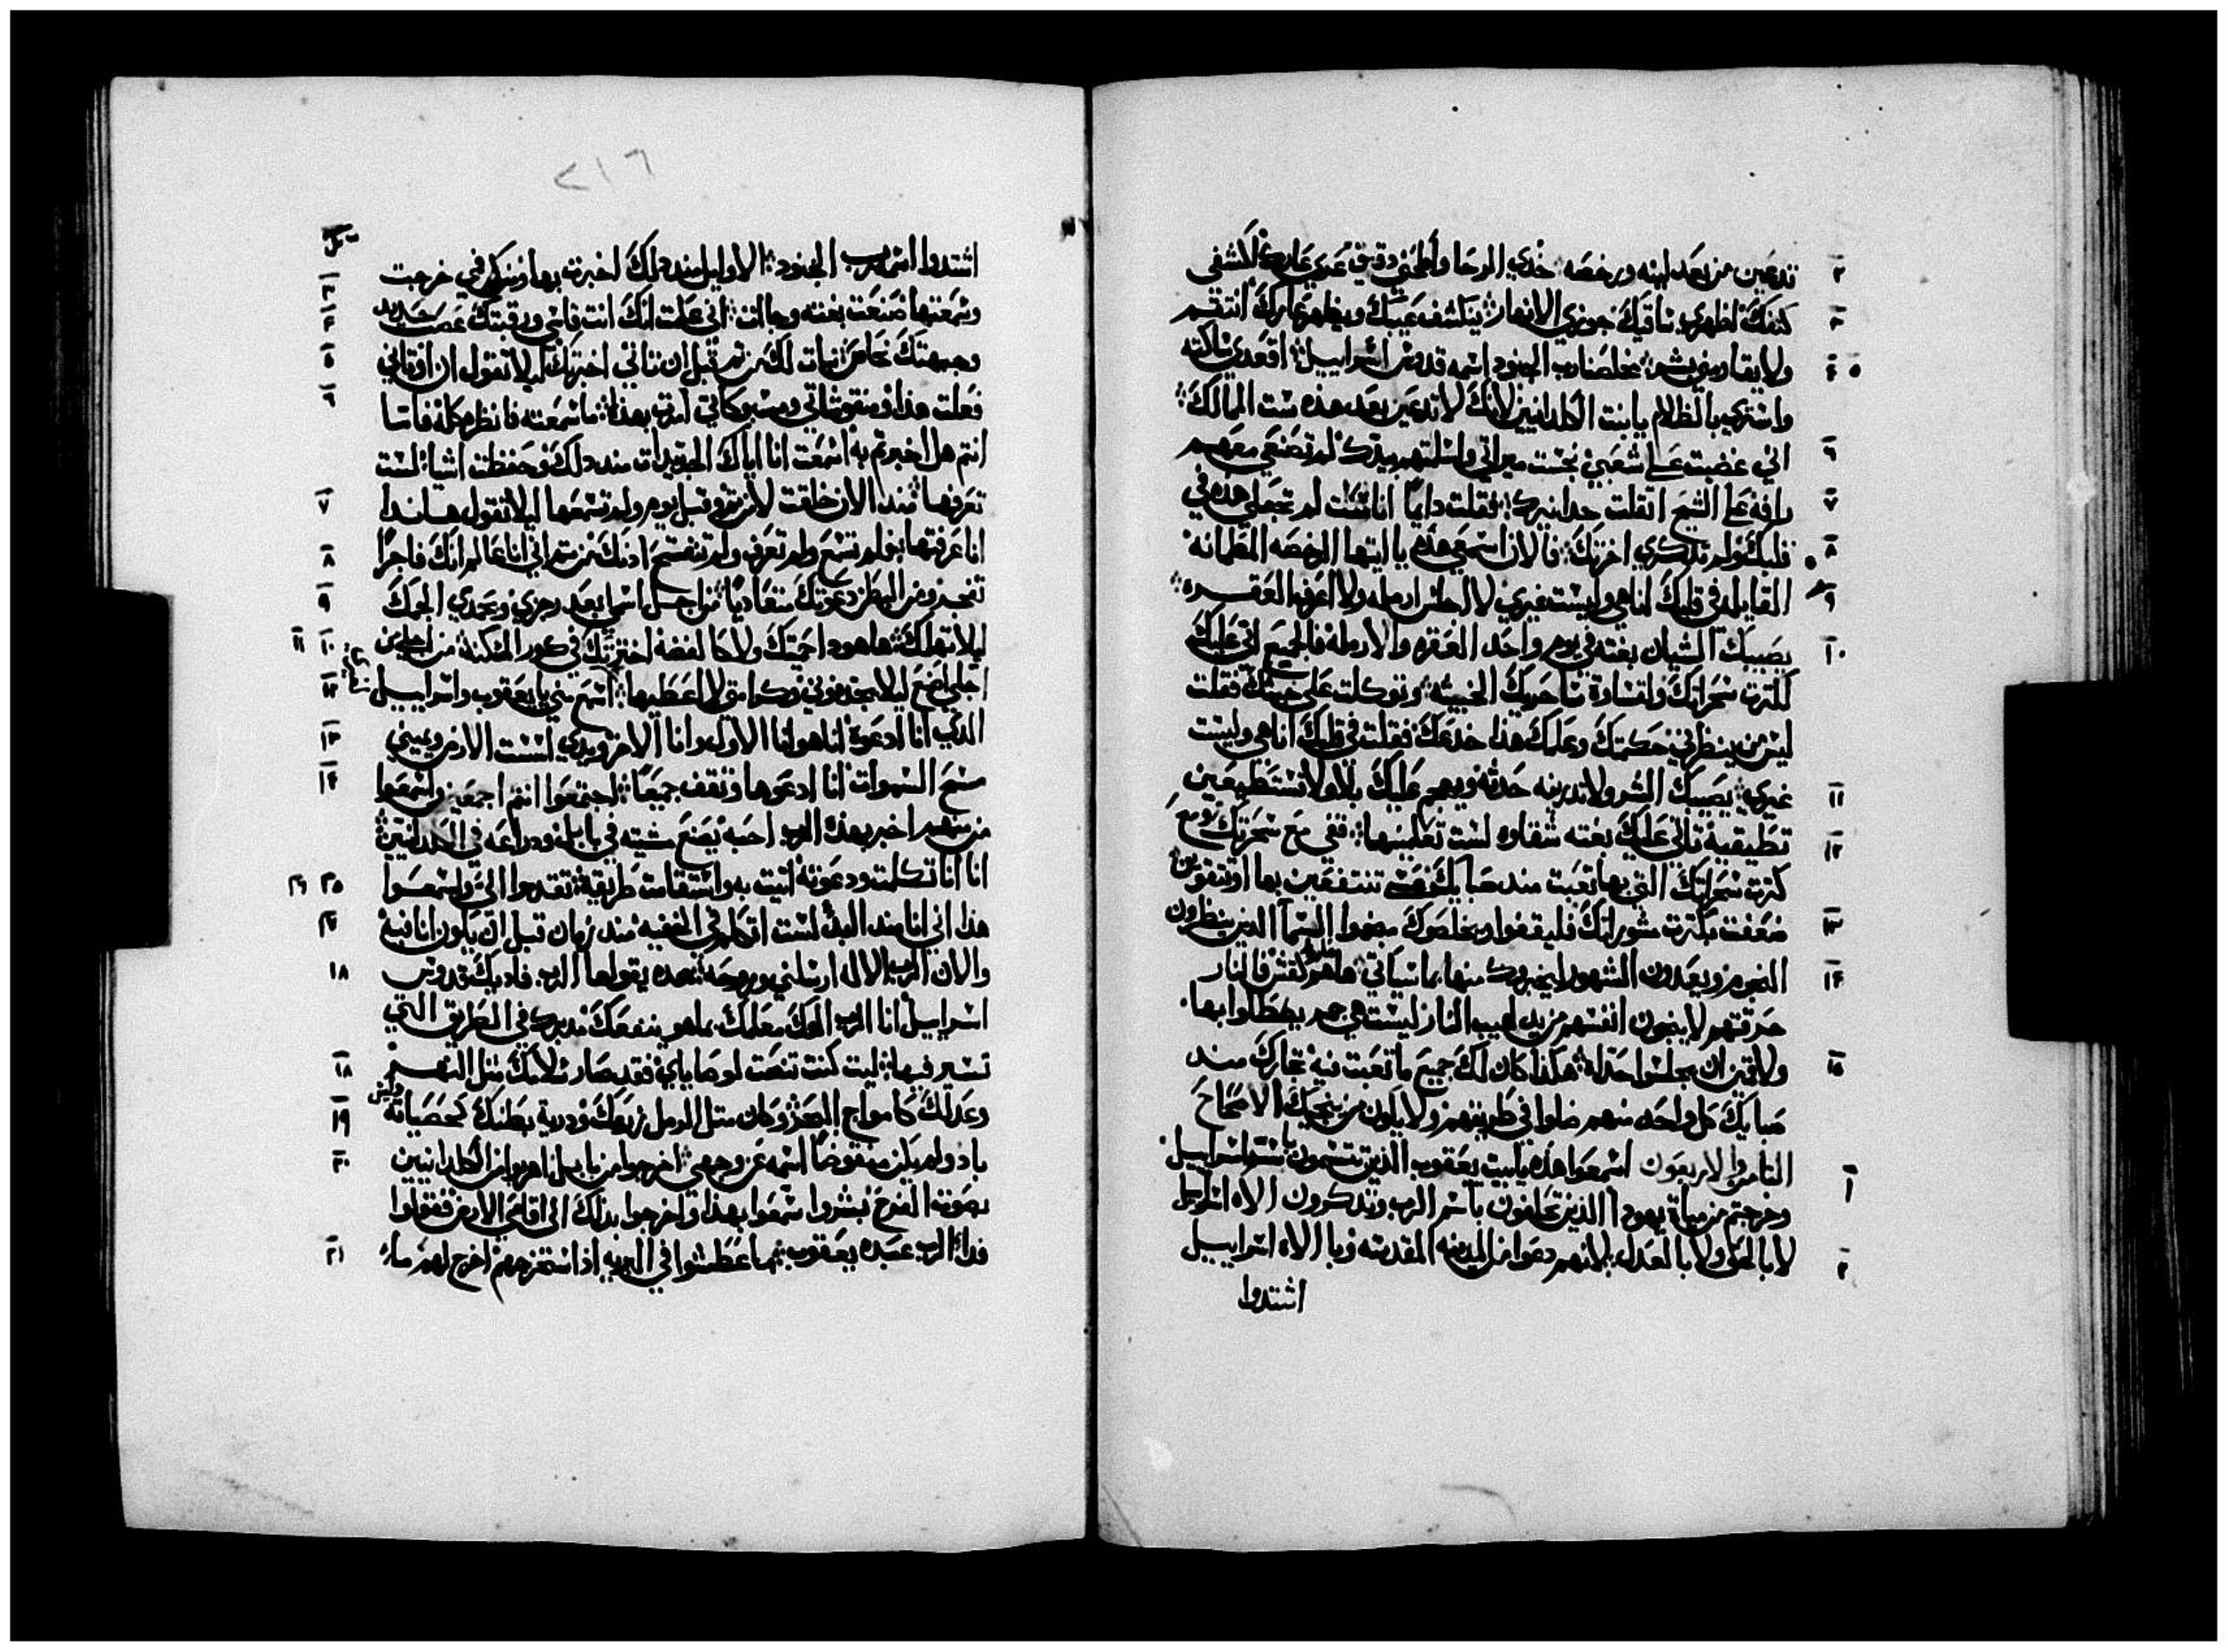 تدعين من بعد لينه ورخصه خدي الرحا واطحني دقيق عري عارك اكشفي
كتفك اظهري ساقيك جوزي الانهار ينكشف عيبك ويظهر عارك انتقم
ولا يقاومني بشر مخلصنا رب الجنود اسمه قدوس اسراييل اقعدي ساكته
واستري بالظلام يا بنت الكلدانيين لانك لا تدعين بعد هذه ست الممالك
اني غضبت على شعبي نجست ميراتي واسلمتهم بيدك لم تصنعي معهم
رافه على الشيخ اتقلت جدا نيرك فقلت دايما انا ست لم تجعلي هذه في
قلبك ولم تدكري اخرتك فالان اسمعي هذه يا ايتها الرخصه المطمانه
القايله في قلبك انا هي وليست غيري لا اجلس ارمله ولا اعرف العقر
يصيبك الشيان بغته في يوم واحد العقر والارمله فالجميع اتى عليك
لكترت سحراتك ولقساوة سحريك الخبيثه وتوكلت على خبتك فقلت
ليس من ينظرني حكمتك وعلمك هذا خدعك فقلت في قلبك انا هي وليست
غيري يصيبك الشر ولا تدرينه حدثه ويهجم عليك بلا ولا تستطيعين
تطيقيه تاتي عليك بغته شقاوه لست تعلمينها قفي مع سحرتك ومع
كترت سحراتك التي بها تعبت مند صباك تنتفعين بها او تتقوين
ضعفت بكترت مشوراتك فليقفوا ويخلصوك منجموا السما الدين ينظرون
النجوم ويعدون الشهور ليخبروك منها بما سياتي ها هم كقش فالنار
حرقتهم لا ينجون انفسهم من يد لهيب النار ليست هي جمر يصطلوا بها
ولا تمين ان يجلسوا حداه هكدا كان لك جميع ما تعبت فيه تجارك مند
صبايك كل واحد منهم ضلوا في طريقهم ولا يكون من ينجيك الاصحاح
التامن والاربعون اسمعوا هذه يا بيت يعقوب الذين تتسمون باسم اسراييل
وخرجتم من مياة يهودا الذين تحلفون باسم الرب وتدكرون الاه اسراييل
لا بالحق ولا بالعدل لانهم دعوا من المدينه المقدسه وبالاه اسراييل
اشتدوا
٢١٦
اشتدوا اسمه رب الجنود الاوايل مند دلك اخبرت بها ومن فمي خرجت
وسمعتها صنعت بغته وجات اني علمت انك انت قاسي ورقبتك عصب حديد
وجبهتك نحاس نبات لك من تم قبل ان تاتي اخبرتك ليلا تقول ان اوتاني
فعلت هذا ومنقوشاتي ومسبوكاتي امرت بهذا ما سمعته فانظر كله فاما
انتم هل اخبرتم به اسمعت انا اياك الجديدات مند دلك وحفظت اشيا لست
تعرفها مند الان خلقت لا من تم وقبل يوم ولم تسمعها ليلا تقول هاندا
انا عرفتها فلم تسمع ولم تعرف ولم تنفتح ادنك من تم اني انا عالم انك فاجرا
تفجر ومن البطن دعوتك متعاديا من اجل اسمي ابعد رجزي وبحمدي الجمك
ليلا تهلك ها هودا حميتك ولا كالفضه اخترتك في كور المسكنه من اجلي من
اجلي اصنع ليلا يجدفوني وكرامتي لا اعطيها اسمع مني يا يعقوب واسراييل
الذي انا ادعوه انا هو انا الاول وانا الاخر ويدي اسست الارض ويميني
مسح السموات انا ادعوها وتقف جميعا اجتمعوا انتم اجمعين واسمعوا
من منهم اخبر بهذه الرب احبه يصنع مشيته في بابل ودراعه في الكلدانيين
انا انا تكلمت ودعوته اتيت به واستقامت طريقه تقدموا الي واسمعوا
هذا اني انا مند البدا لست اتكلم في الخفيه مند زمان قبل ان يكون انا فيه
والان الرب الاله ارسلني وروحه هده يقولها الرب فاديك قدوس
اسراييل انا الرب الهك معلمك بما هو ينفعك مدبرك في الطريق التي
تسير فيها ليت كنت تنصت لوصاياي فقد صار سلامك متل النهر
وعدلك كامواج البحر وكان متل الرمل زرعك ودرية بطنك كحصياته
باد ولم يكن منقوضا اسمه عن وجهي اخرجوا من بابل اهربوا من الكلدانيين
بصوت الفرح بشروا سمعوا بهذا واخرجوا بدلك الى اقاصي الارض فقولوا
فدا الرب عبده يعقوب ما عطشوا في البريه اذا استخرجهم اخرج لهم ماء